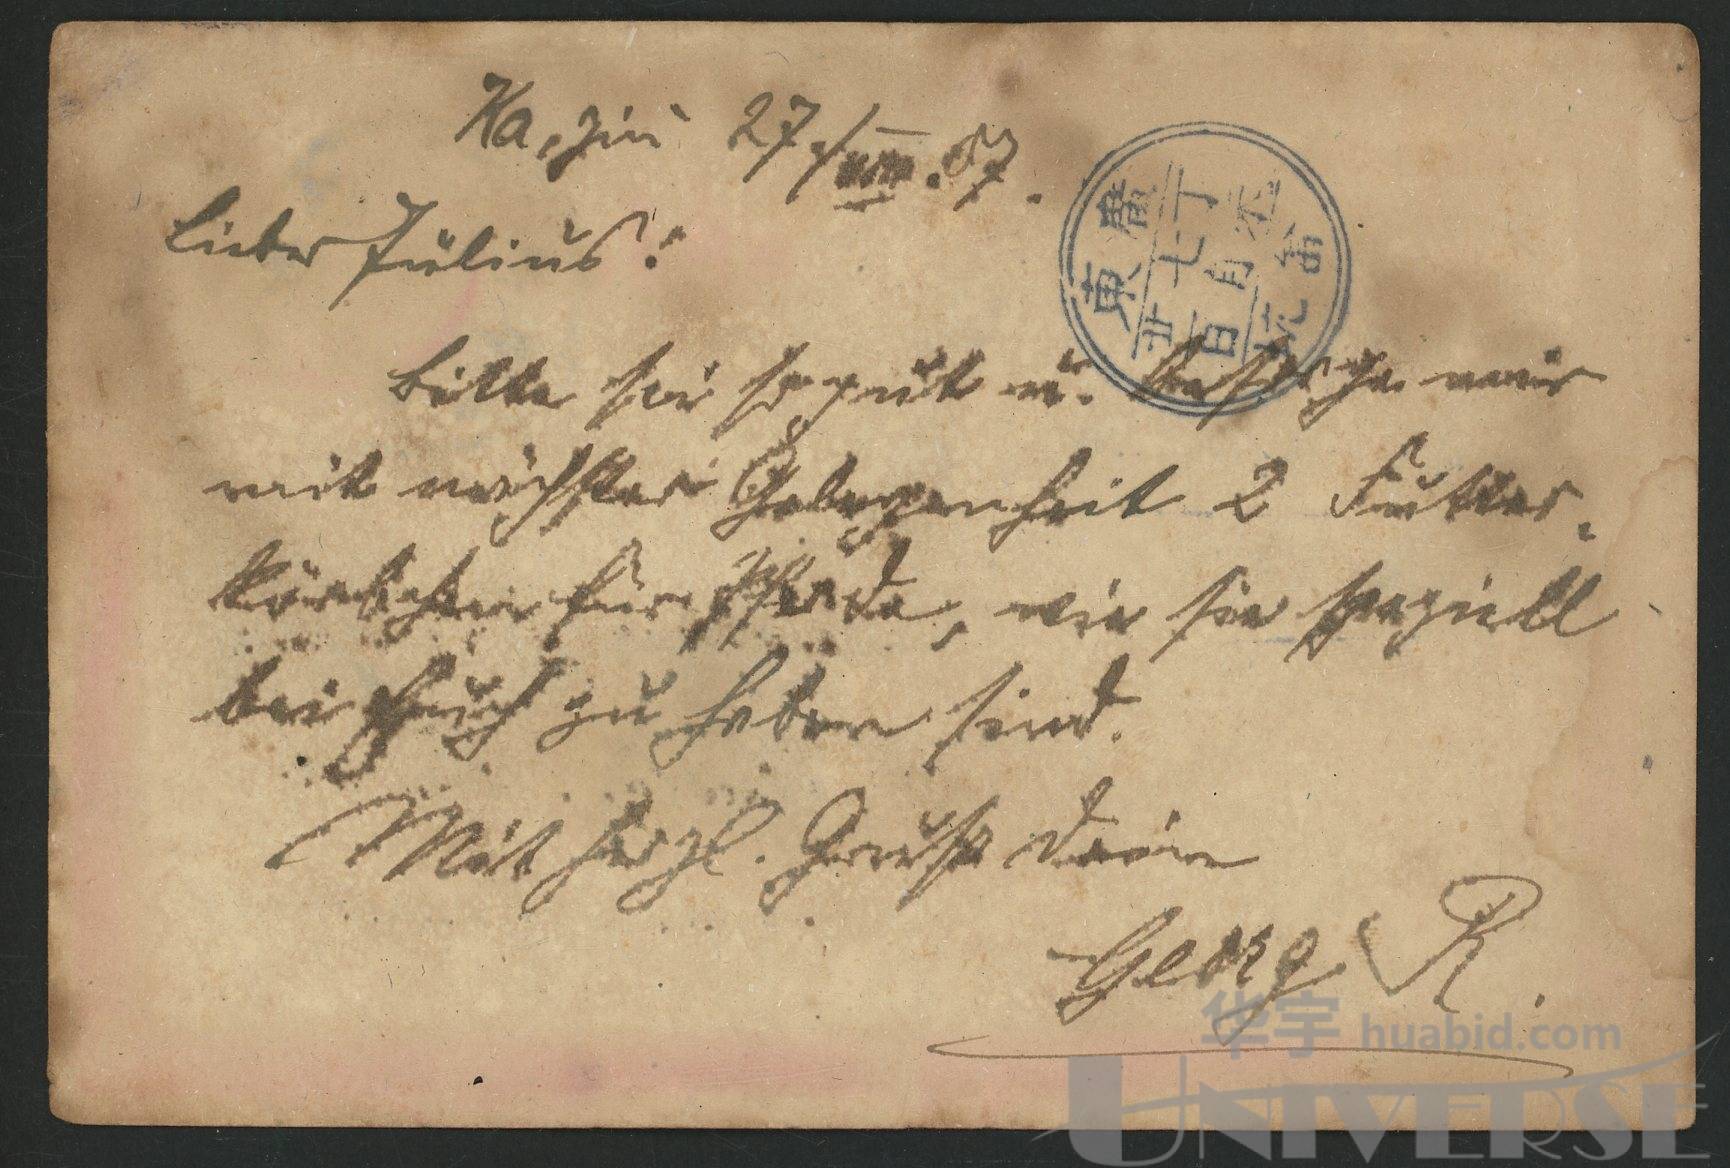 Ka,yin 27./VIII.07.
Lieber Julius!
Bitte sei so gut u. besorge mir
mit nächster Gelegenheit 2 Futter-
körbchen für Pferde, wie sie speziell
bei Euch zu haben sind.
Mit herzl. Gruß Dein
Georg R.
廣東
丁未
七月
廿日
畬坑
华宇 huabid.com
UNIVERSE